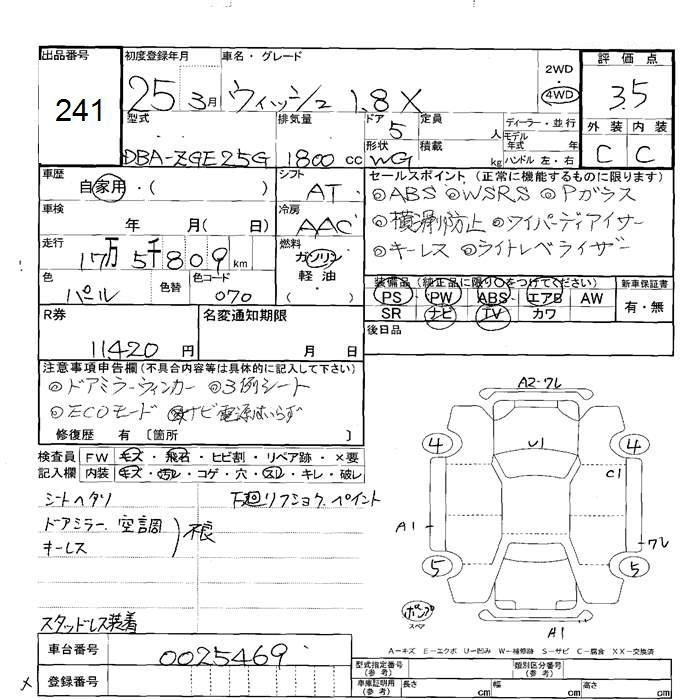 出品番号
241
初度登録年月
25 3月
車名・グレード
ウィッシュ 1.8X
2WD
・
4WD
評価点
3.5
外装 内装
C C
型式
DBA-ZGE25G
排気量
1800 cc
ドア
5
定員
人
ディーラー・並行
モデル年式 年
形状
WG
積載
kg
ハンドル 左・右
車歴
自家用・( )
シフト
AT
車検
年 月( 日)
冷房
AAC
走行
17万5千809km
燃料
ガソリン
軽油
( )
色
パール
色替
色コード
070
セールスポイント(正常に機能するものに限ります)
◎ABS ◎WSRS ◎Pガラス
◎横滑り防止 ◎ワイパーディアイサー
◎キーレス ◎ライトレベライザー
装備品(純正品に限り○をつけてください)
PS PW ABS エアB AW
SR ナビ TV カワ
新車保証書
有・無
後日品
R券
11420 円
名変通知期限
月 日
注意事項申告欄(不具合内容等は具体的に記入して下さい)
◎ドアミラーウィンカー ◎3列シート
◎ECOモード ナビ電源はいらず
修復歴 有〔箇所 〕
検査員
記入欄
FW キズ・飛石・ヒビ割・リペア跡・×要
内装 キズ・汚レ・コゲ・穴・スレ・キレ・破レ
シートヘタリ
下廻リフショク、ペイント
ドアミラー、空調
キーレス
不良
スタッドレス装着
車台番号
0025469
登録番号
A2・ワレ
4
U1
4
C1
A1
ワレ
5
5
ポンプ
スペア
A1
A=キズ E=エクボ U=凹み W=補修跡 S=サビ C=腐食 XX=交換済
型式指定番号
(参考)
類別区分番号
(参考)
車庫証明用
(参考)
長さ cm 幅 cm 高さ cm